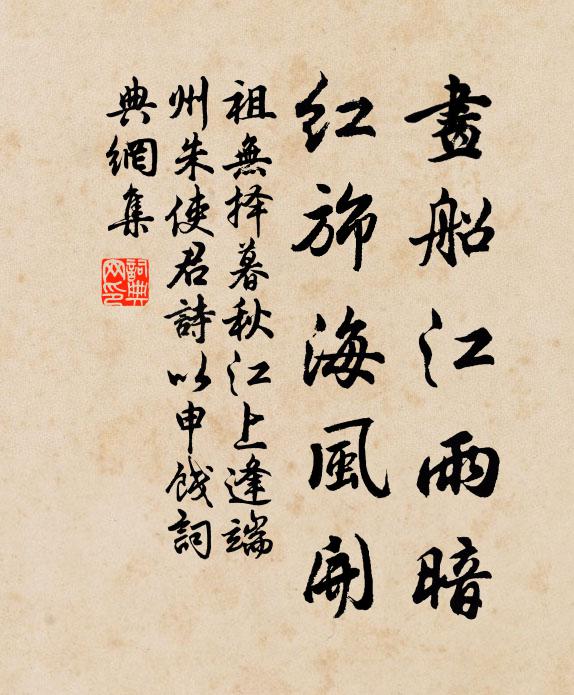 畫船江雨暗
红旆海風開
祖無择暮秋江上逢端
州朱使君詩以申餞詞
典網集
詞典
网印